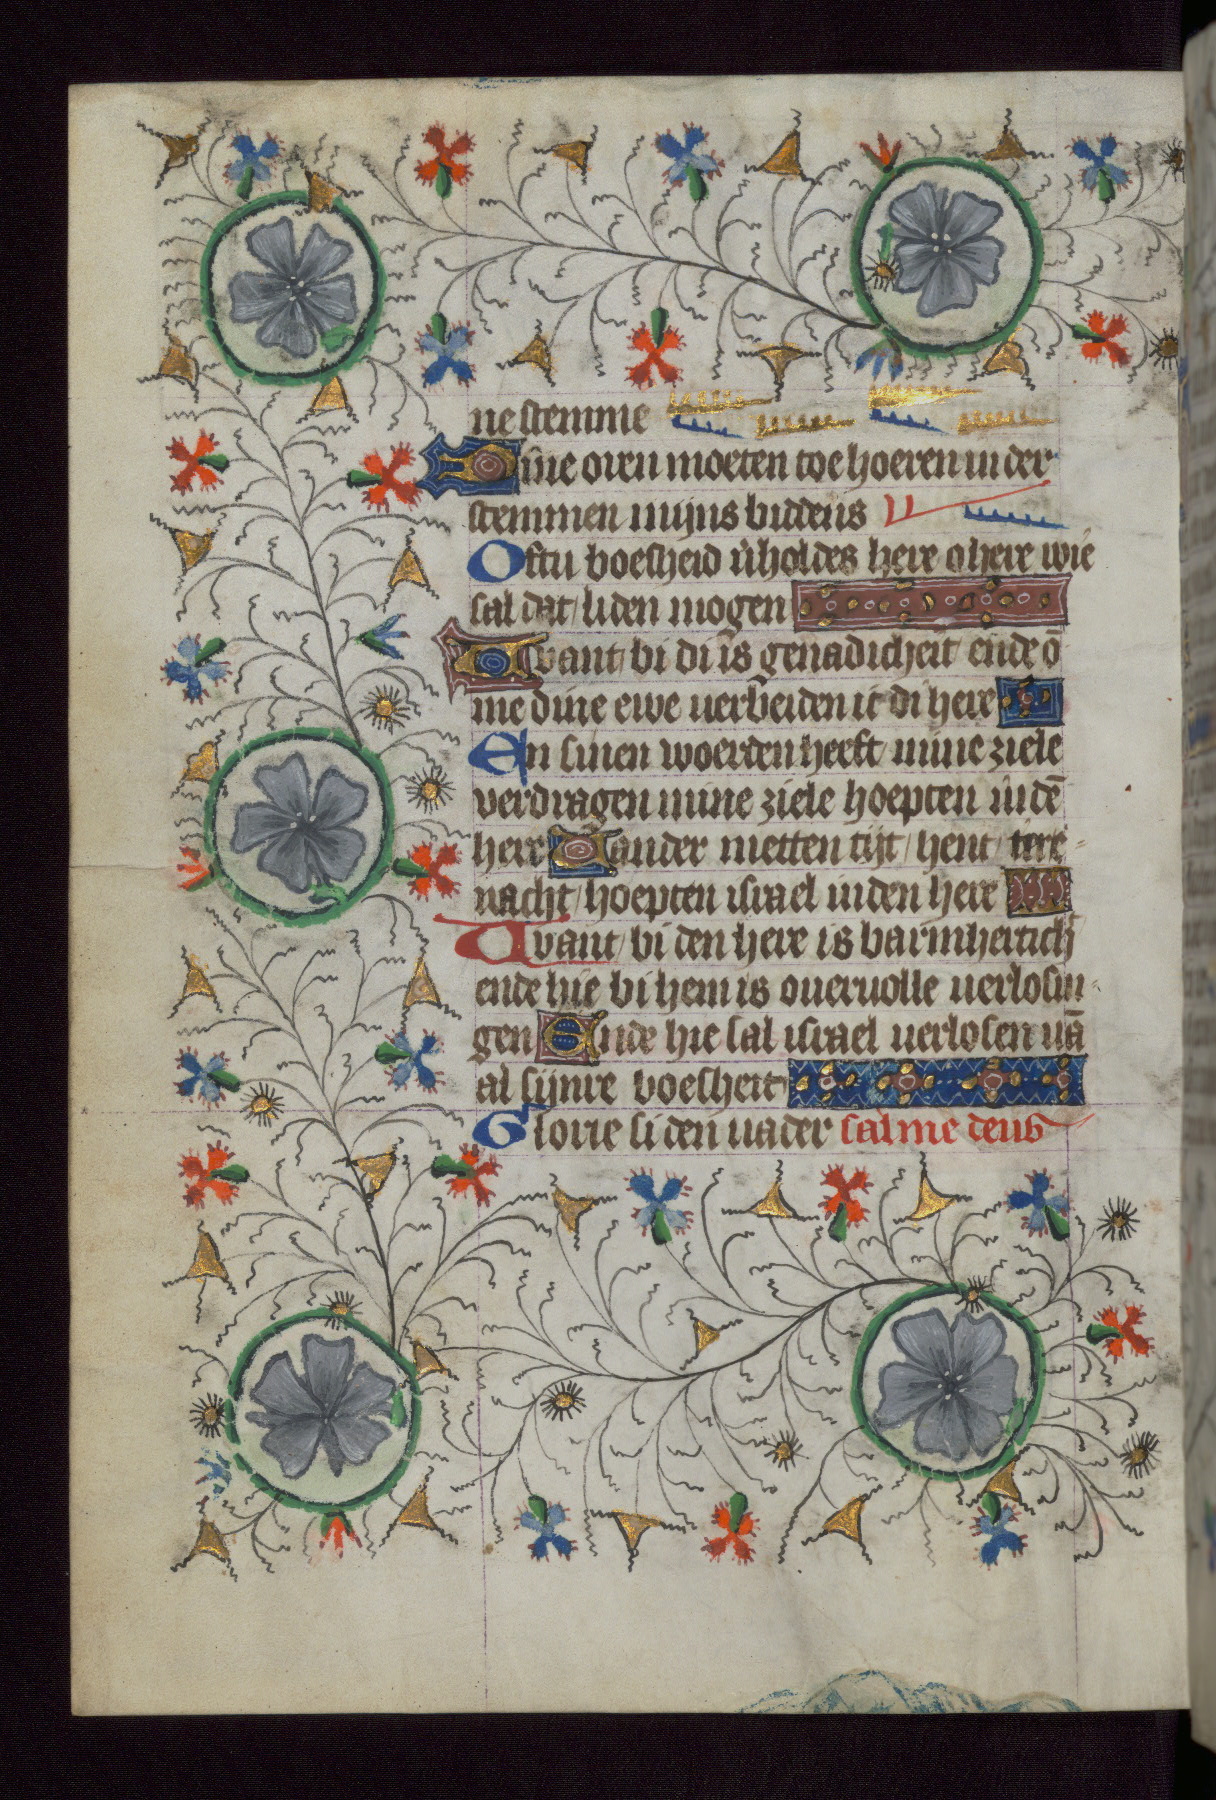 ne stemme
Dine oren moeten toe hoeren in der
stemmen mijns biddens
Ofstu boesheid ûholdes here o here wie
sal dat liden mogen
Want bi di is genadicheit ende õ
me dine ewe uerbeiden ic di here
En sinen woerden heeft mine ziele
verdragen mine ziele hoepten in dē
here Vander metten tijt hent tere
nacht hoepten israel in den here
Want bi den here is barmhertich
ende hie bi hem is ouervolle uerlosin
gen Ende hie sal israel uerlosen uā
al sijnre boesheit
Glorie si den uader salme deus